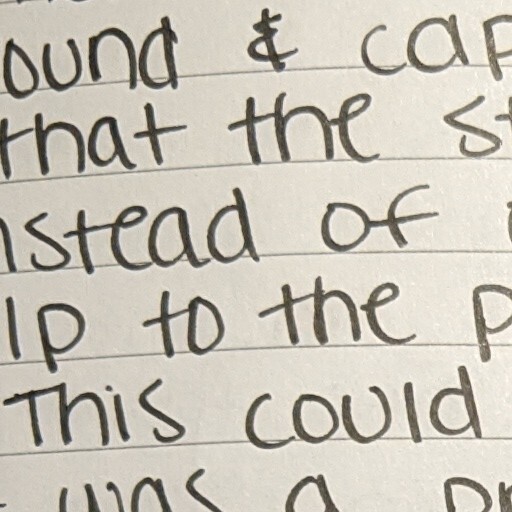 ound & cap
that the st
nstead of
lp to the p
This could
was a pr